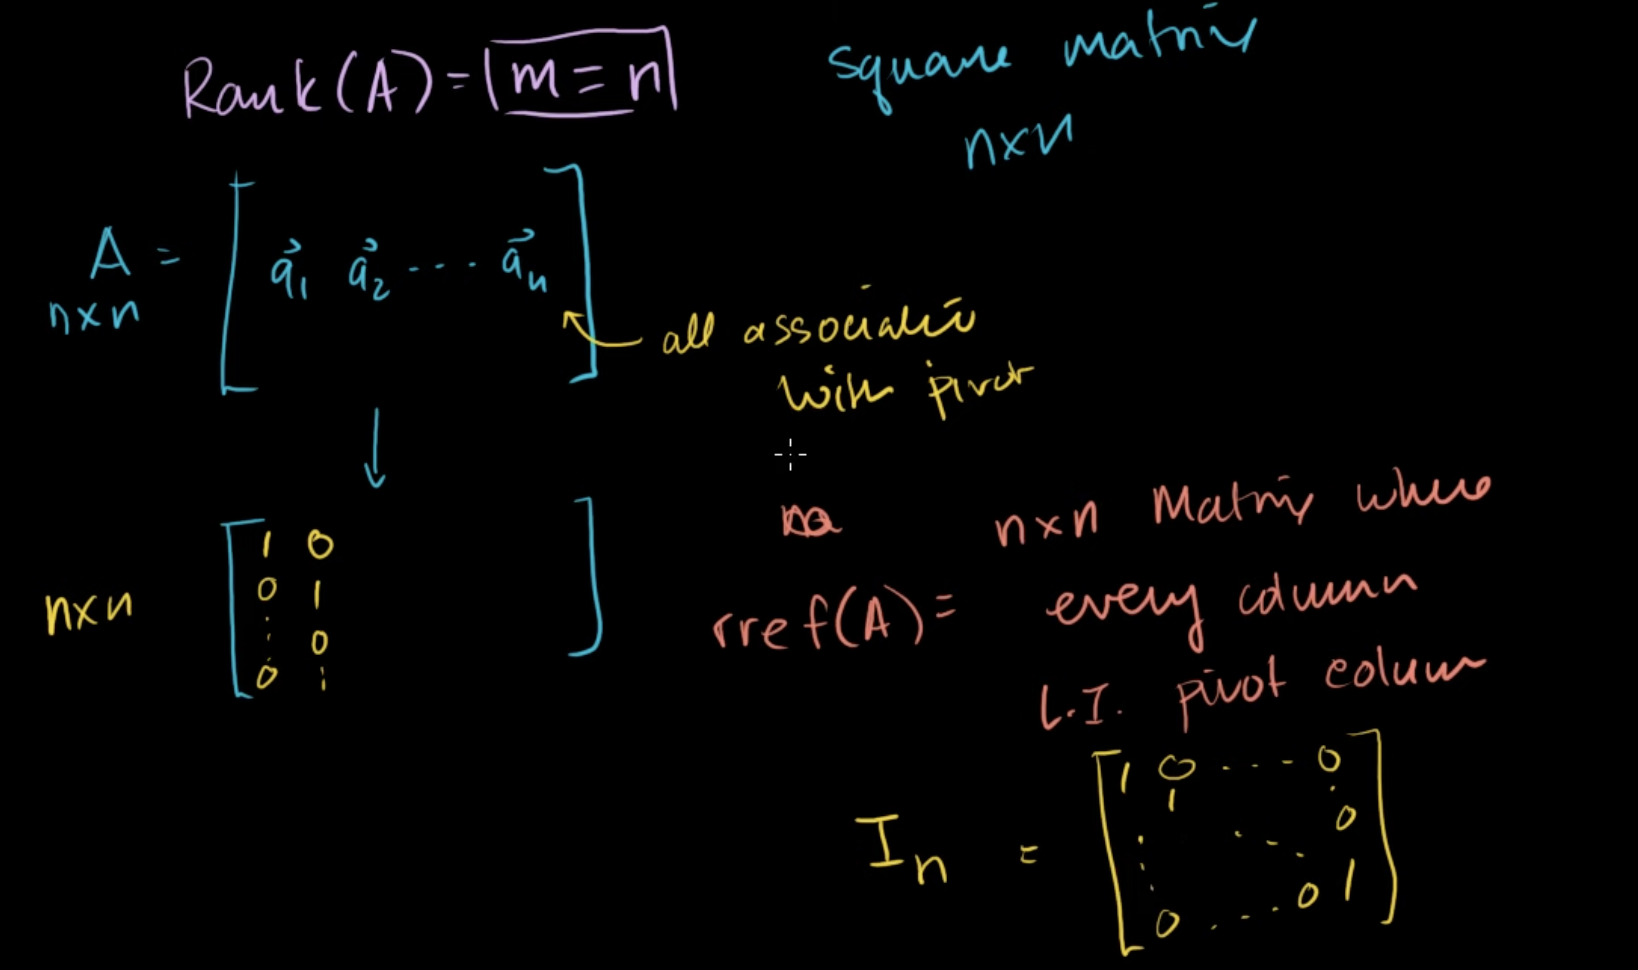 Rank(A) = m = n
square matrix
n×n
A = [ a⃗₁ a⃗₂ ··· a⃗ₙ ]
n×n
all associated
with pivot
n×n
1 0
0 1
⋮ 0
0 ⋮
rref(A) = n×n Matrix where
every column
L.I. pivot column
Iₙ =
1 0 ··· 0
1 ⋮
⋮ ⋱ 0
0 ··· 0 1